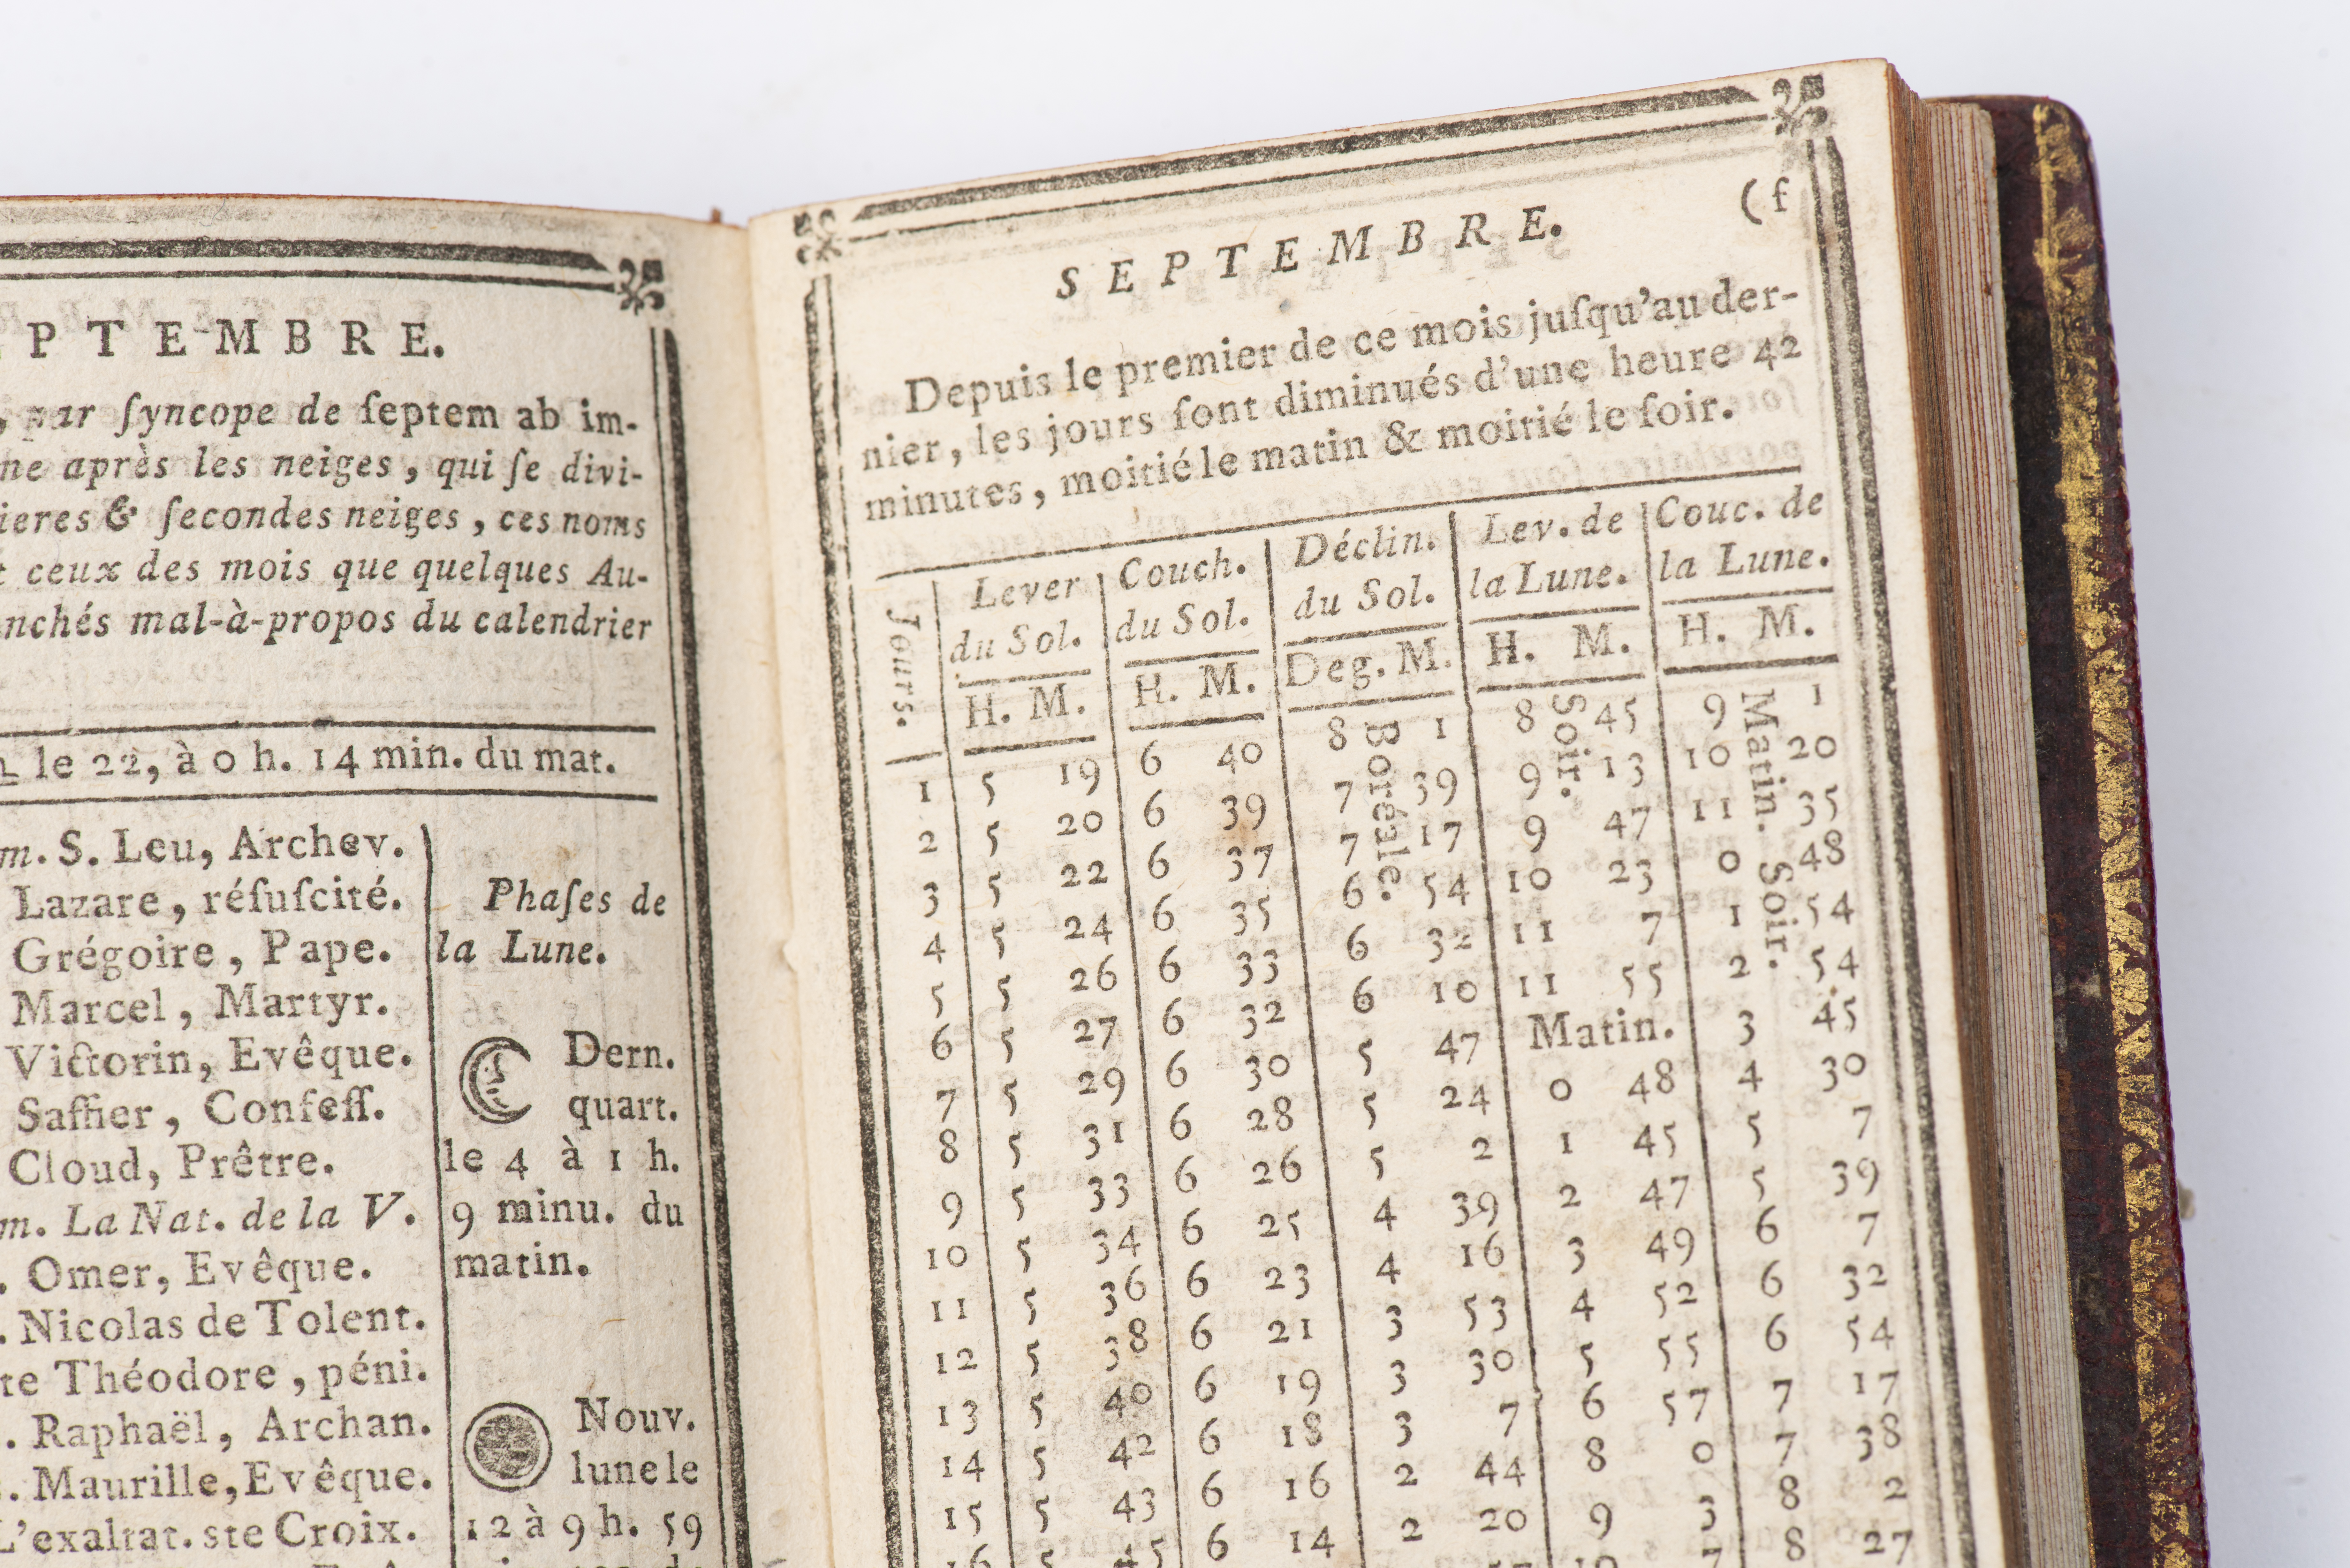 PTEMBRE.
, par ſyncope de ſeptem ab im-
ne après les neiges, qui ſe divi-
ieres & ſecondes neiges, ces noms
t ceux des mois que quelques Au-
nchés mal-à-propos du calendrier
le 22, à 0 h. 14 min. du mat.
m. S. Leu, Archev.
Lazare, réſuſcité.
Grégoire, Pape.
Marcel, Martyr.
Victorin, Evêque.
Saffier, Confeſſ.
Cloud, Prêtre.
m. La Nat. de la V.
. Omer, Evêque.
. Nicolas de Tolent.
te Théodore, péni.
. Raphaël, Archan.
. Maurille, Evêque.
L'exaltat. ste Croix.
Phaſes de
la Lune.
Dern.
quart.
le 4 à 1 h.
9 minu. du
matin.
Nouv.
lune le
12 à 9 h. 59
(f
SEPTEMBRE.
Depuis le premier de ce mois juſqu'au der-
nier, les jours ſont diminués d'une heure 42
minutes, moitié le matin & moitié le ſoir.
Jours. Lever du Sol. Couch. du Sol. Déclin. du Sol. Lev. de la Lune. Couc. de la Lune.
H. M. H. M. Deg. M. H. M. H. M.
Boréale. Soir. Matin. Soir.
1 5 19 6 40 8 1 8 45 9 1
2 5 20 6 39 7 39 9 13 10 20
3 5 22 6 37 7 17 9 47 11 35
4 5 24 6 35 6 54 10 23 0 48
5 5 26 6 33 6 32 11 7 1 54
6 5 27 6 32 6 10 11 55 2 54
7 5 29 6 30 5 47 Matin. 3 45
8 5 31 6 28 5 24 0 48 4 30
9 5 33 6 26 5 2 1 45 5 7
10 5 34 6 25 4 39 2 47 5 39
11 5 36 6 23 4 16 3 49 6 7
12 5 38 6 21 3 53 4 52 6 32
13 5 40 6 19 3 30 5 55 6 54
14 5 42 6 18 3 7 6 57 7 17
15 5 43 6 16 2 44 8 0 7 38
16 5 45 6 14 2 20 9 3 8 2
10 7 8 27